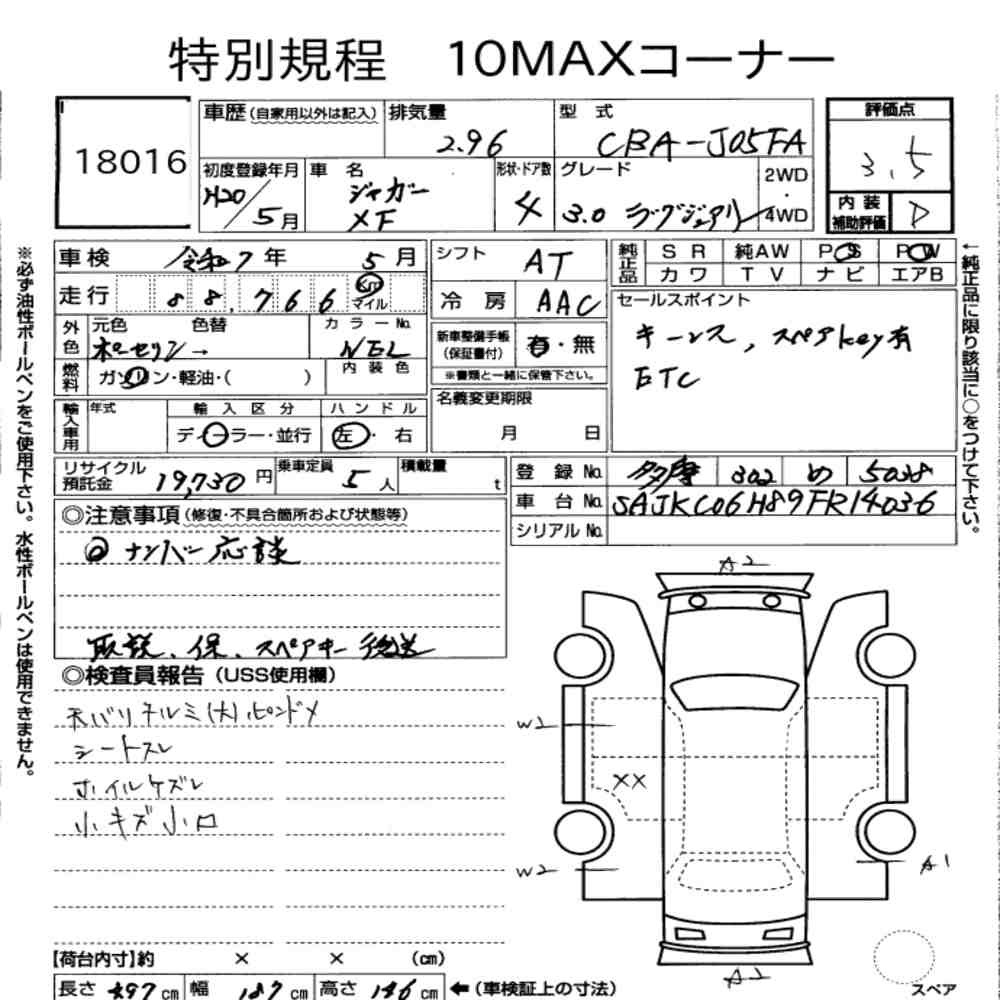 特別規程 10MAXコーナー
18016
車歴(自家用以外は記入) 排気量 2.96 型式 CBA-J05FA
初度登録年月 H20/5月 車名 ジャガー XF 形状・ドア数 4 グレード 3.0 ラグジュアリー 2WD・4WD
評価点 3.5
内装補助評価 D
※必ず油性ボールペンをご使用下さい。水性ボールペンは使用できません。
車検 令和7年 5月
走行 88,766 km マイル
外色 元色 色替 カラーNo.
ポーセリン→ NEL
燃料 ガソリン・軽油・( ) 内装色
輸入車用 年式 輸入区分 ハンドル
ディーラー・並行 左・右
リサイクル預託金 19,730円 乗車定員 5人 積載量 t
シフト AT
冷房 AAC
新車整備手帳(保証書付) 有・無
※書類と一緒に保管下さい。
名義変更期限
月 日
純正品 SR 純AW PS PW
カワ TV ナビ エアB
セールスポイント
キーレス、スペアkey有
ETC
←純正品に限り該当に○をつけて下さい。
登録No. 多摩 302 め 5038
車台No. SAJKC06H89FR14036
シリアルNo.
◎注意事項(修復・不具合箇所および状態等)
ナンバー応談
取説、保、スペアキー後送
◎検査員報告(USS使用欄)
天バリタルミ(大)ルピンドメ
シートスレ
ホイルケズレ
小キズ小凹
A2
W1
XX
W2
A1
A2
スペア
【荷台内寸】約 × × (cm)
長さ 497cm 幅 187cm 高さ 146cm ←(車検証上の寸法)